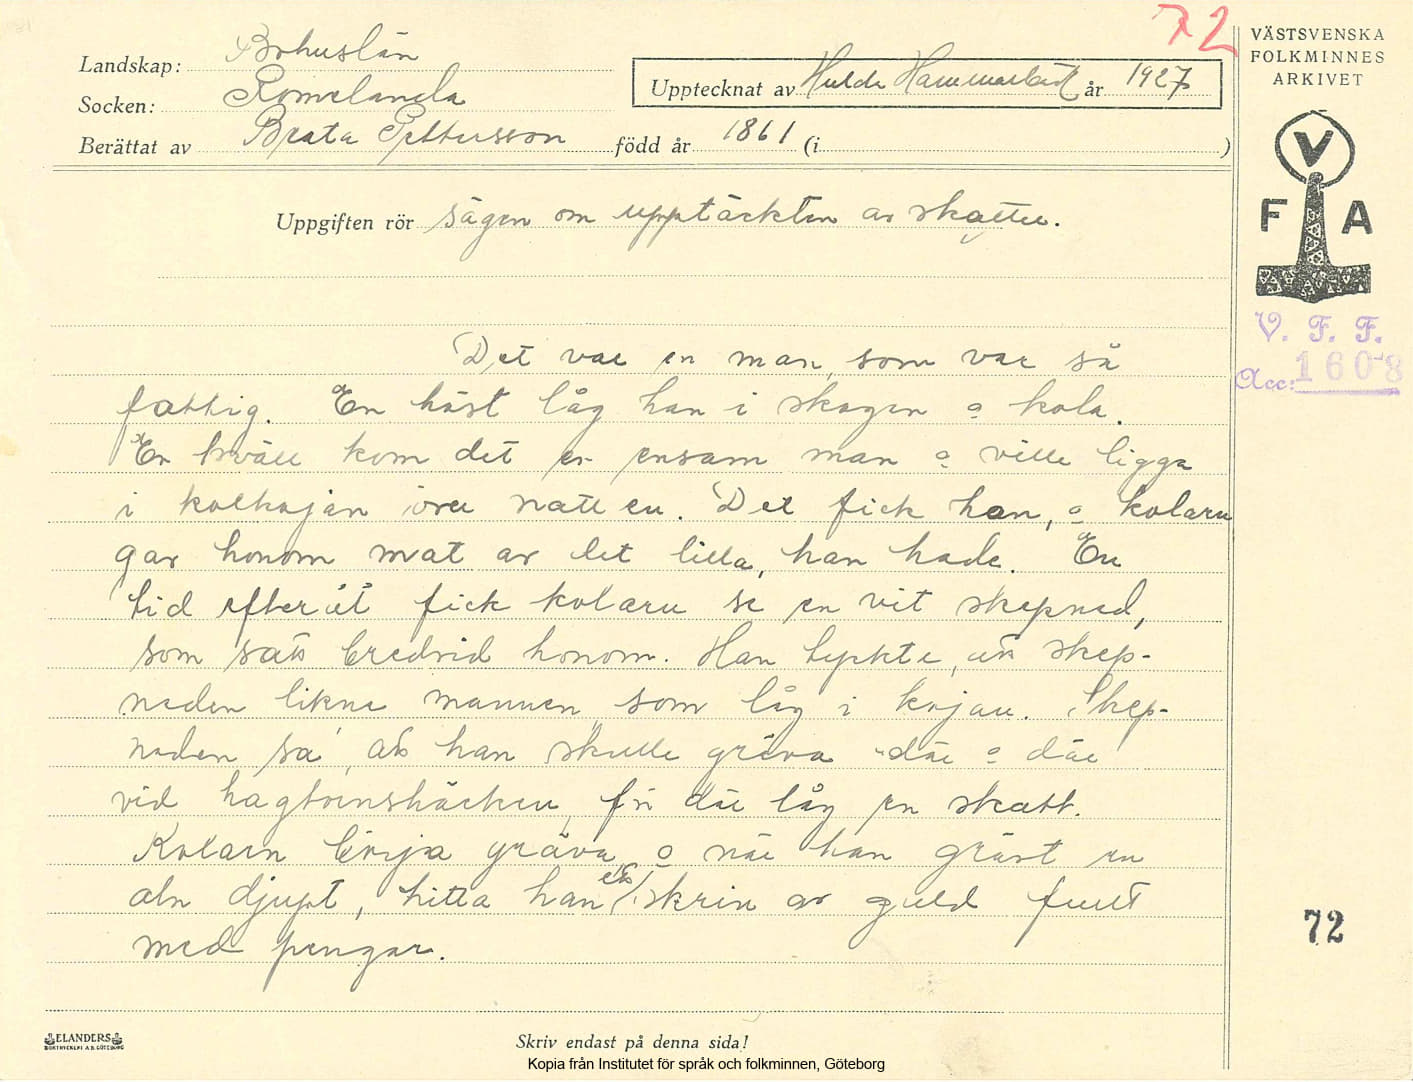 72
VÄSTSVENSKA
FOLKMINNES
ARKIVET
Landskap: Bohuslän
Socken: Romelanda
Upptecknat av Hulda Hammarbäck år 1927
Berättat av Beata Pettersson född år 1861 (i )
V
F A
V. F. F.
Acc: 1608
Uppgiften rör sägen om upptäckten av skatter.
Det var en man, som var så
fattig. En höst låg han i skogen o kola.
En kväll kom det en ensam man o ville ligga
i kolkojan över natten. Det fick han, o kolarn
gav honom mat av det lilla, han hade. En
tid efteråt fick kolarn se en vit skepnad,
som satt bredvid honom. Han tyckte, att skep-
naden likna mannen, som låg i kojan. Skep-
naden sa, att han skulle gräva där o där
vid hagtornshäcken, för där låg en skatt.
Kolarn börja gräva, o när han grävt en
aln djupt, hitta han ett skrin av guld fullt
med pengar.
72
ELANDERS
BOKTRYCKERI A.B. GÖTEBORG
Skriv endast på denna sida!
Kopia från Institutet för språk och folkminnen, Göteborg